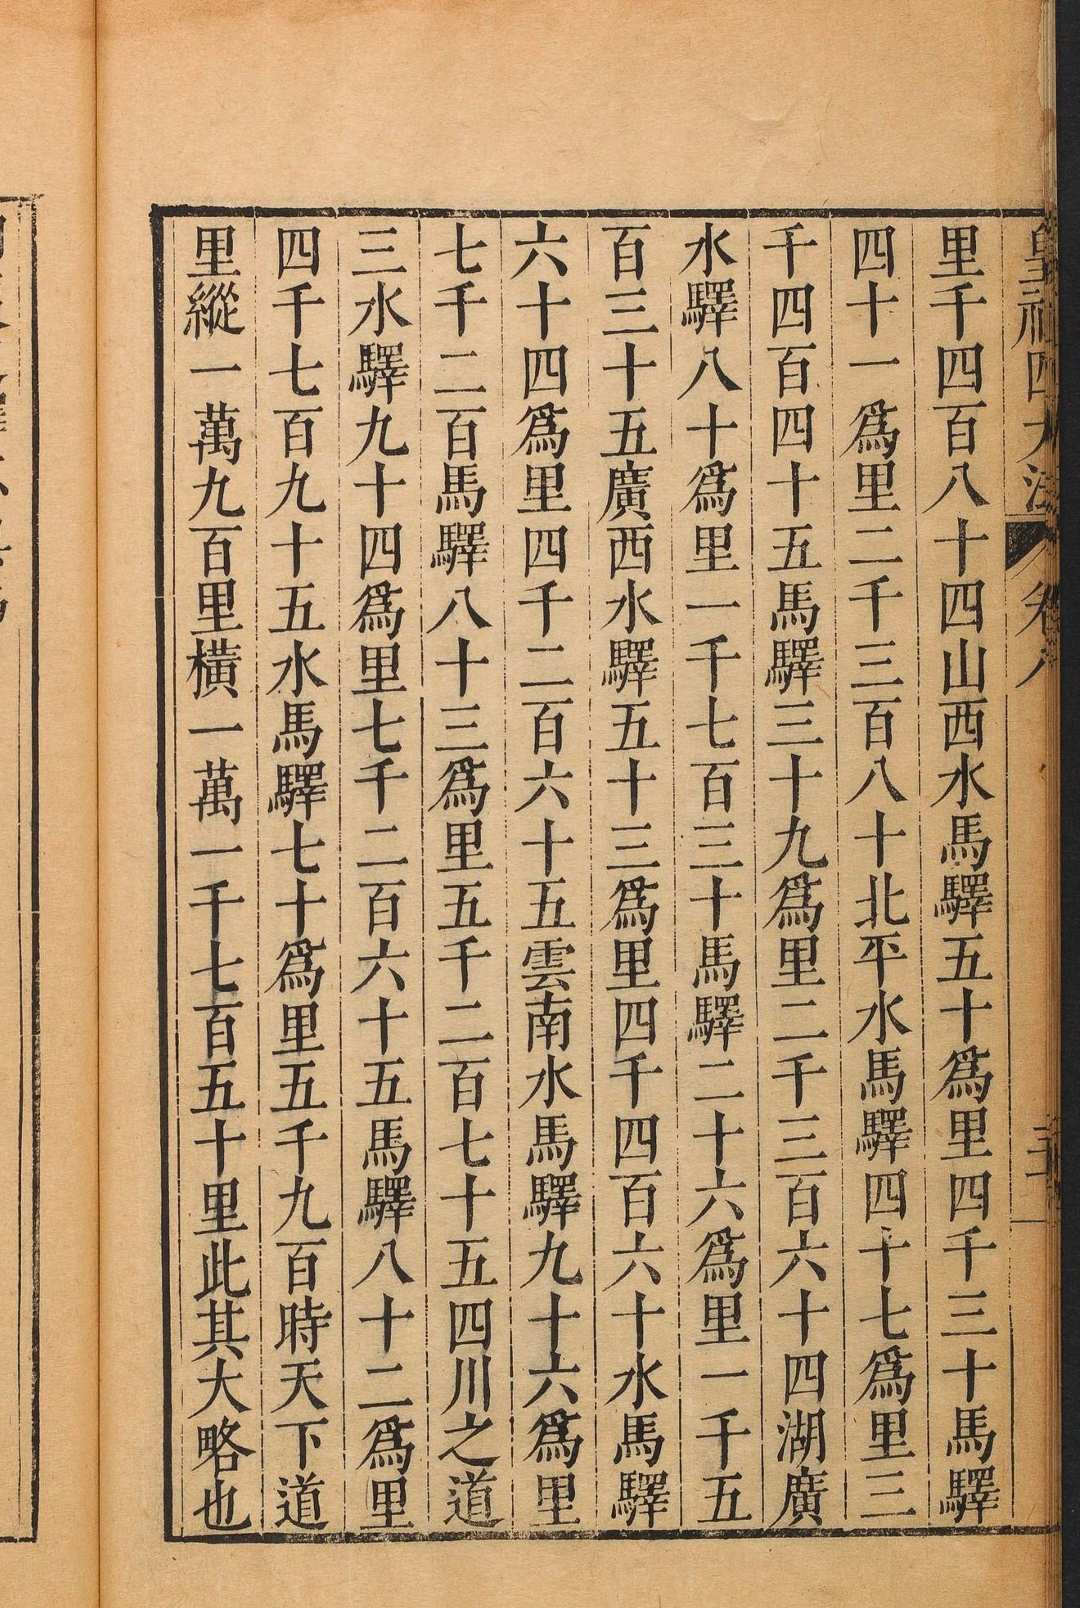 皇祖四大法
卷八
里千四百八十四山西水馬驛五十爲里四千三十馬驛
四十一爲里二千三百八十北平水馬驛四十七爲里三
千四百四十五馬驛三十九爲里二千三百六十四湖廣
水驛八十爲里一千七百三十馬驛二十六爲里一千五
百三十五廣西水驛五十三爲里四千四百六十水馬驛
六十四爲里四千二百六十五雲南水馬驛九十六爲里
七千二百馬驛八十三爲里五千二百七十五四川之道
三水驛九十四爲里七千二百六十五馬驛八十二爲里
四千七百九十五水馬驛七十爲里五千九百時天下道
里縱一萬九百里橫一萬一千七百五十里此其大略也